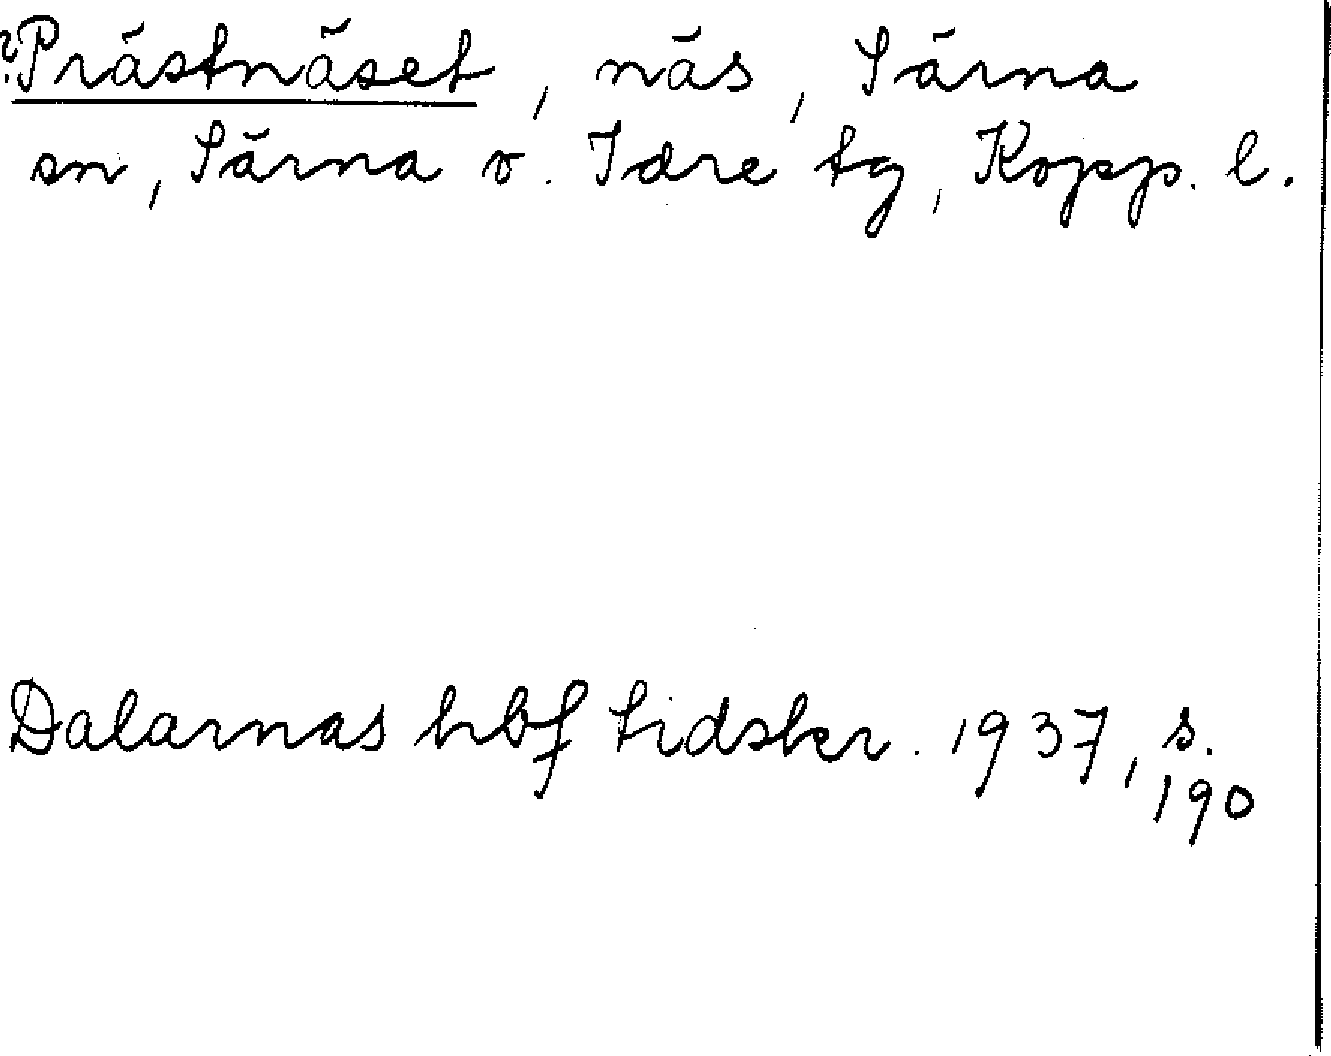 ?Prästnäset, näs, Särna
sn, Särna o. Idre tg, Kopp. l.
Dalarnas hbf tidskr. 1937, s.
190